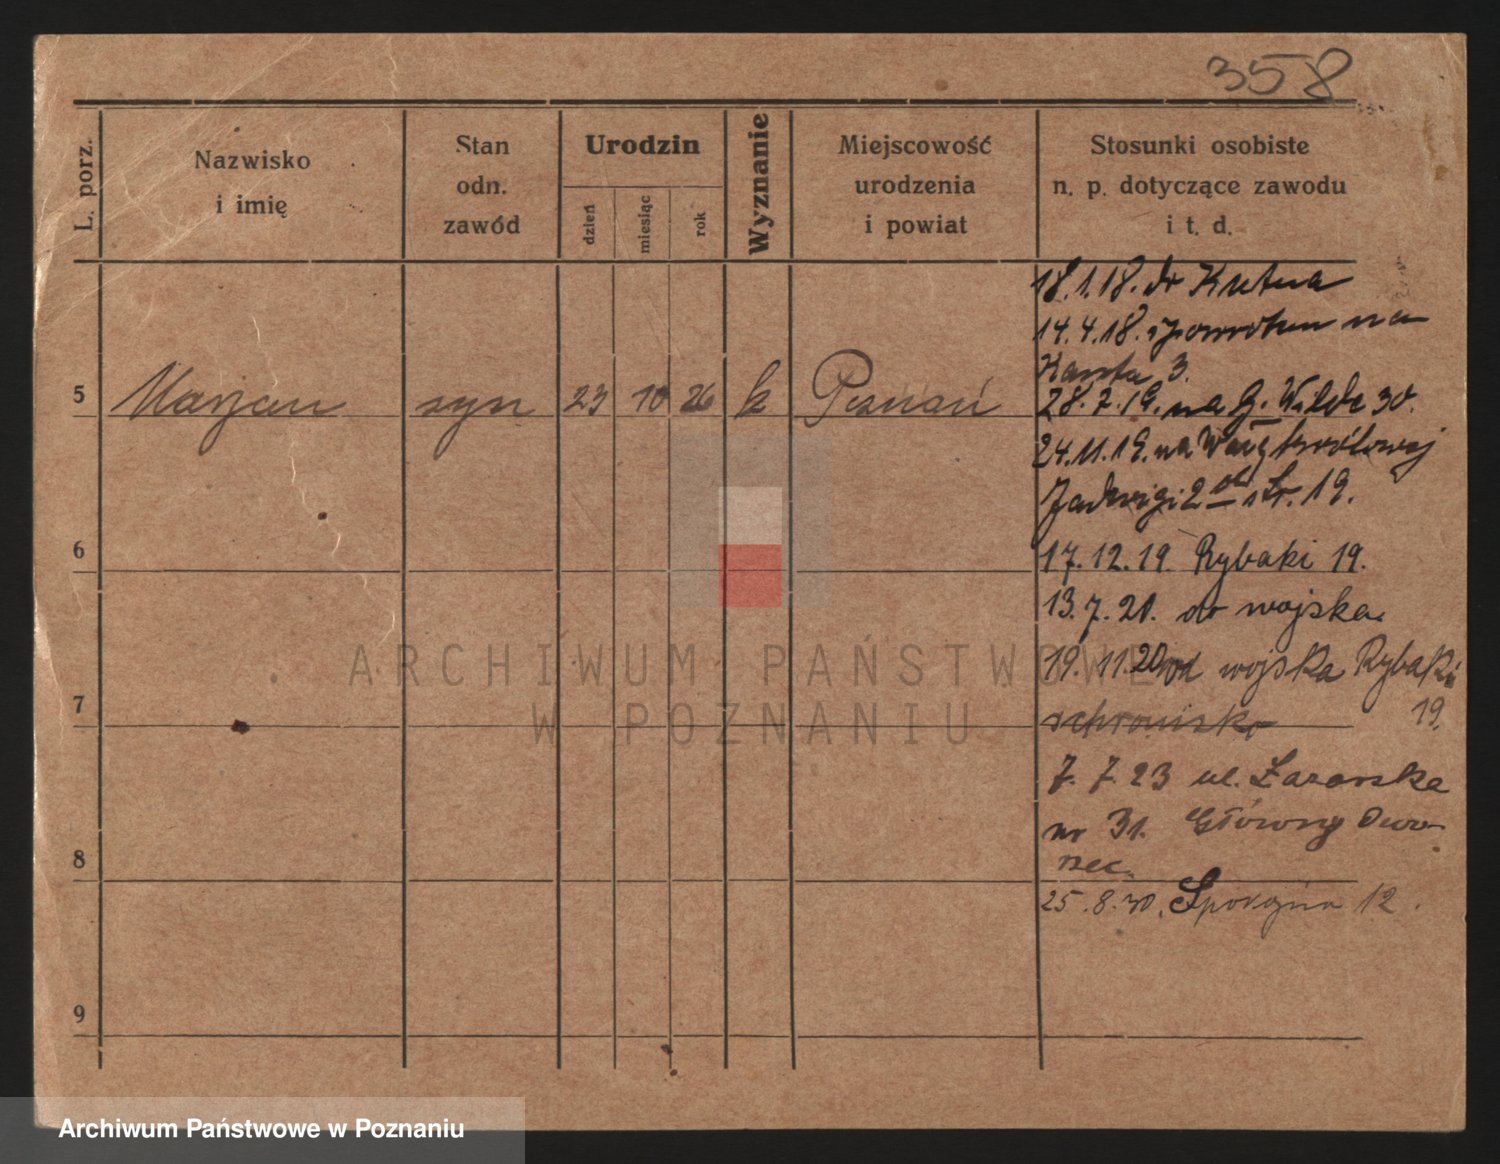 358
L. porz.
Nazwisko
i imię
Stan
odn.
zawód
Urodzin
dzień
miesiąc
rok
Wyznanie
Miejscowość
urodzenia
i powiat
Stosunki osobiste
n. p. dotyczące zawodu
i t. d.
18.1.18. Kutna
14.4.18. na
3.
5 Marjan syn 23 10 26 k Poznań
28.7.19. na G. Wilda 30.
24.11.19. na Królowej
Jadwigi 2
19.
6
17.12.19. Rybaki 19.
13.7.20. do wojska.
19.11.20 od wojska Rybaki
19.
7
schronisko
7.7.23 ul. Łazarska
nr 31. Główny Dwo-
rzec.
8
25.8.30. Spokojna 12.
9
ARCHIWUM PAŃSTWOWE
W POZNANIU
Archiwum Państwowe w Poznaniu